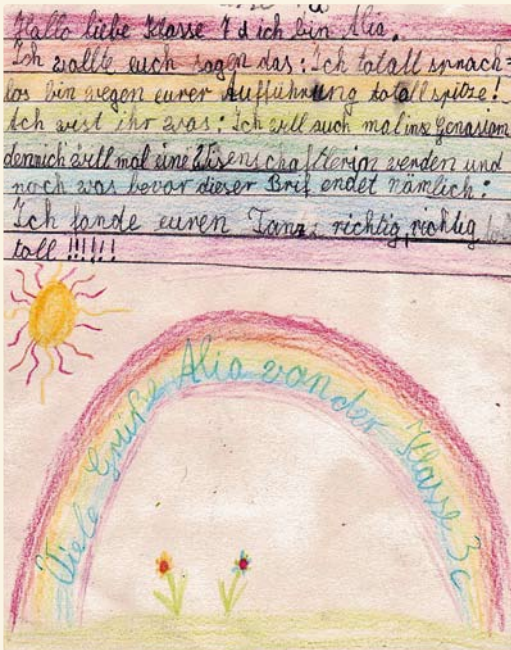 Hallo liebe Klasse 7d ich bin Alia.
Ich wollte euch sagen das: Ich totall sprach=
los bin wegen eurer Aufführung totall spitze!
Ach wist ihr was: Ich will auch mal ins Genasium
dennich will mal eine Wisenschaftlerin werden und
noch was bevor dieser Brif endet nämlich:
Ich fande euren Tanz richtig, richtig
toll !!!!!!
Viele Grüße Alia von der Klasse 3c